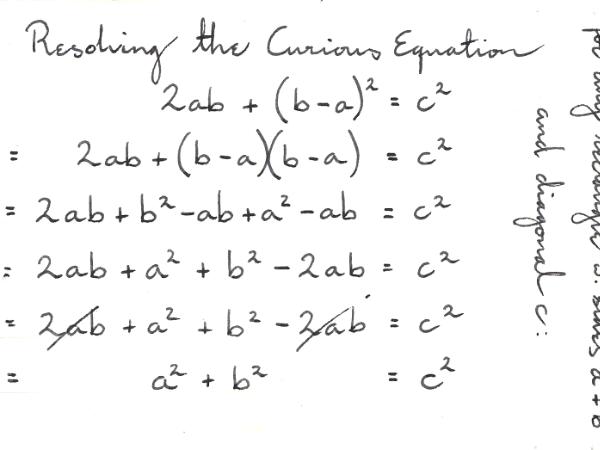 Resolving the Curious Equation
2ab + (b-a)² = c²
= 2ab + (b-a)(b-a) = c²
= 2ab + b² - ab + a² - ab = c²
= 2ab + a² + b² - 2ab = c²
= 2ab + a² + b² - 2ab = c²
= a² + b² = c²
for any rectangle sides a + b
and diagonal c: